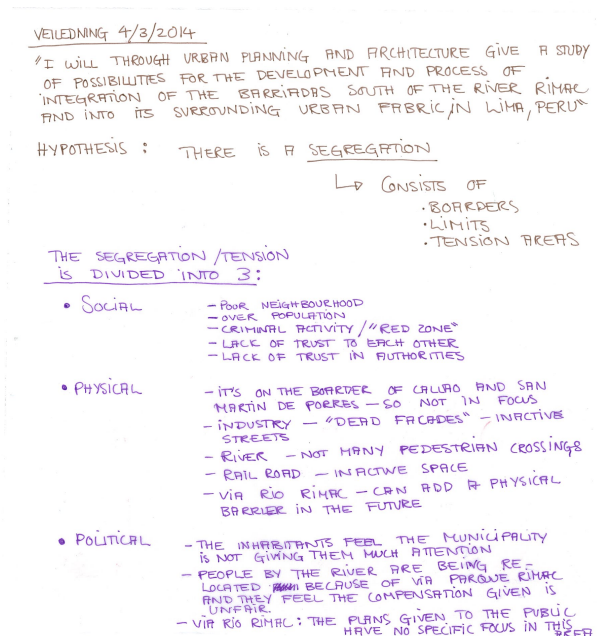 VEILEDNING 4/3/2014
"I WILL THROUGH URBAN PLANNING AND ARCHITECTURE GIVE A STUDY
OF POSSIBILITIES FOR THE DEVELOPMENT AND PROCESS OF
INTEGRATION OF THE BARRIADAS SOUTH OF THE RIVER RIMAC
AND INTO ITS SURROUNDING URBAN FABRIC, IN LIMA, PERU"
HYPOTHESIS : THERE IS A SEGREGATION
↳ CONSISTS OF
· BOARDERS
· LIMITS
· TENSION AREAS
THE SEGREGATION/TENSION
IS DIVIDED INTO 3:
• SOCIAL – POOR NEIGHBOURHOOD
– OVER POPULATION
– CRIMINAL ACTIVITY/"RED ZONE"
– LACK OF TRUST TO EACH OTHER
– LACK OF TRUST IN AUTHORITIES
• PHYSICAL – IT'S ON THE BOARDER OF CALLAO AND SAN
MARTIN DE PORRES – SO NOT IN FOCUS
– INDUSTRY – "DEAD FACADES" – INACTIVE
STREETS
– RIVER – NOT MANY PEDESTRIAN CROSSINGS
– RAIL ROAD – INACTIVE SPACE
– VIA RIO RIMAC – CAN ADD A PHYSICAL
BARRIER IN THE FUTURE
• POLITICAL – THE INHABITANTS FEEL THE MUNICIPALITY
IS NOT GIVING THEM MUCH ATTENTION
– PEOPLE BY THE RIVER ARE BEING RE-
LOCATED BECAUSE OF VIA PARQUE RIMAC
AND THEY FEEL THE COMPENSATION GIVEN IS
UNFAIR.
– VIA RIO RIMAC: THE PLANS GIVEN TO THE PUBLIC
HAVE NO SPECIFIC FOCUS IN THIS
AREA